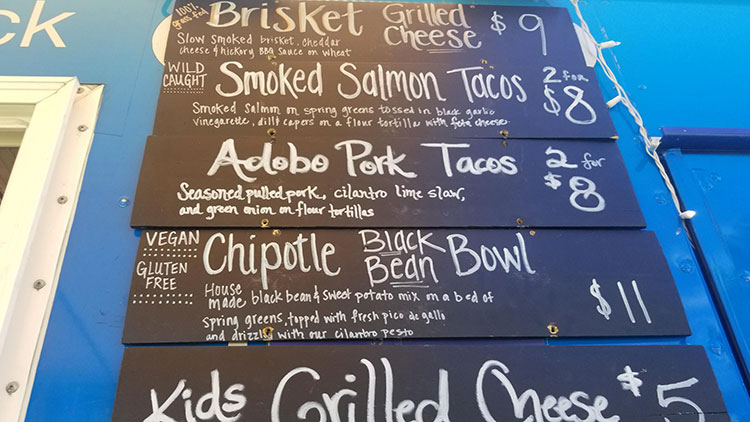 ck
100% grass fed
Brisket Grilled Cheese $9
Slow smoked brisket, cheddar
cheese & hickory BBQ sauce on wheat
WILD CAUGHT
Smoked Salmon Tacos 2 for $8
Smoked Salmon on spring greens tossed in black garlic
vinegarette, dill & capers on a flour tortilla with feta cheese
Adobo Pork Tacos 2 for $8
Seasoned pulled pork, cilantro lime slaw,
and green onion on flour tortillas
VEGAN
GLUTEN FREE
Chipotle Black Bean Bowl $11
House made black bean & sweet potato mix on a bed of
spring greens, topped with fresh pico de gallo
and drizzle with our cilantro pesto
Kids Grilled Cheese $5